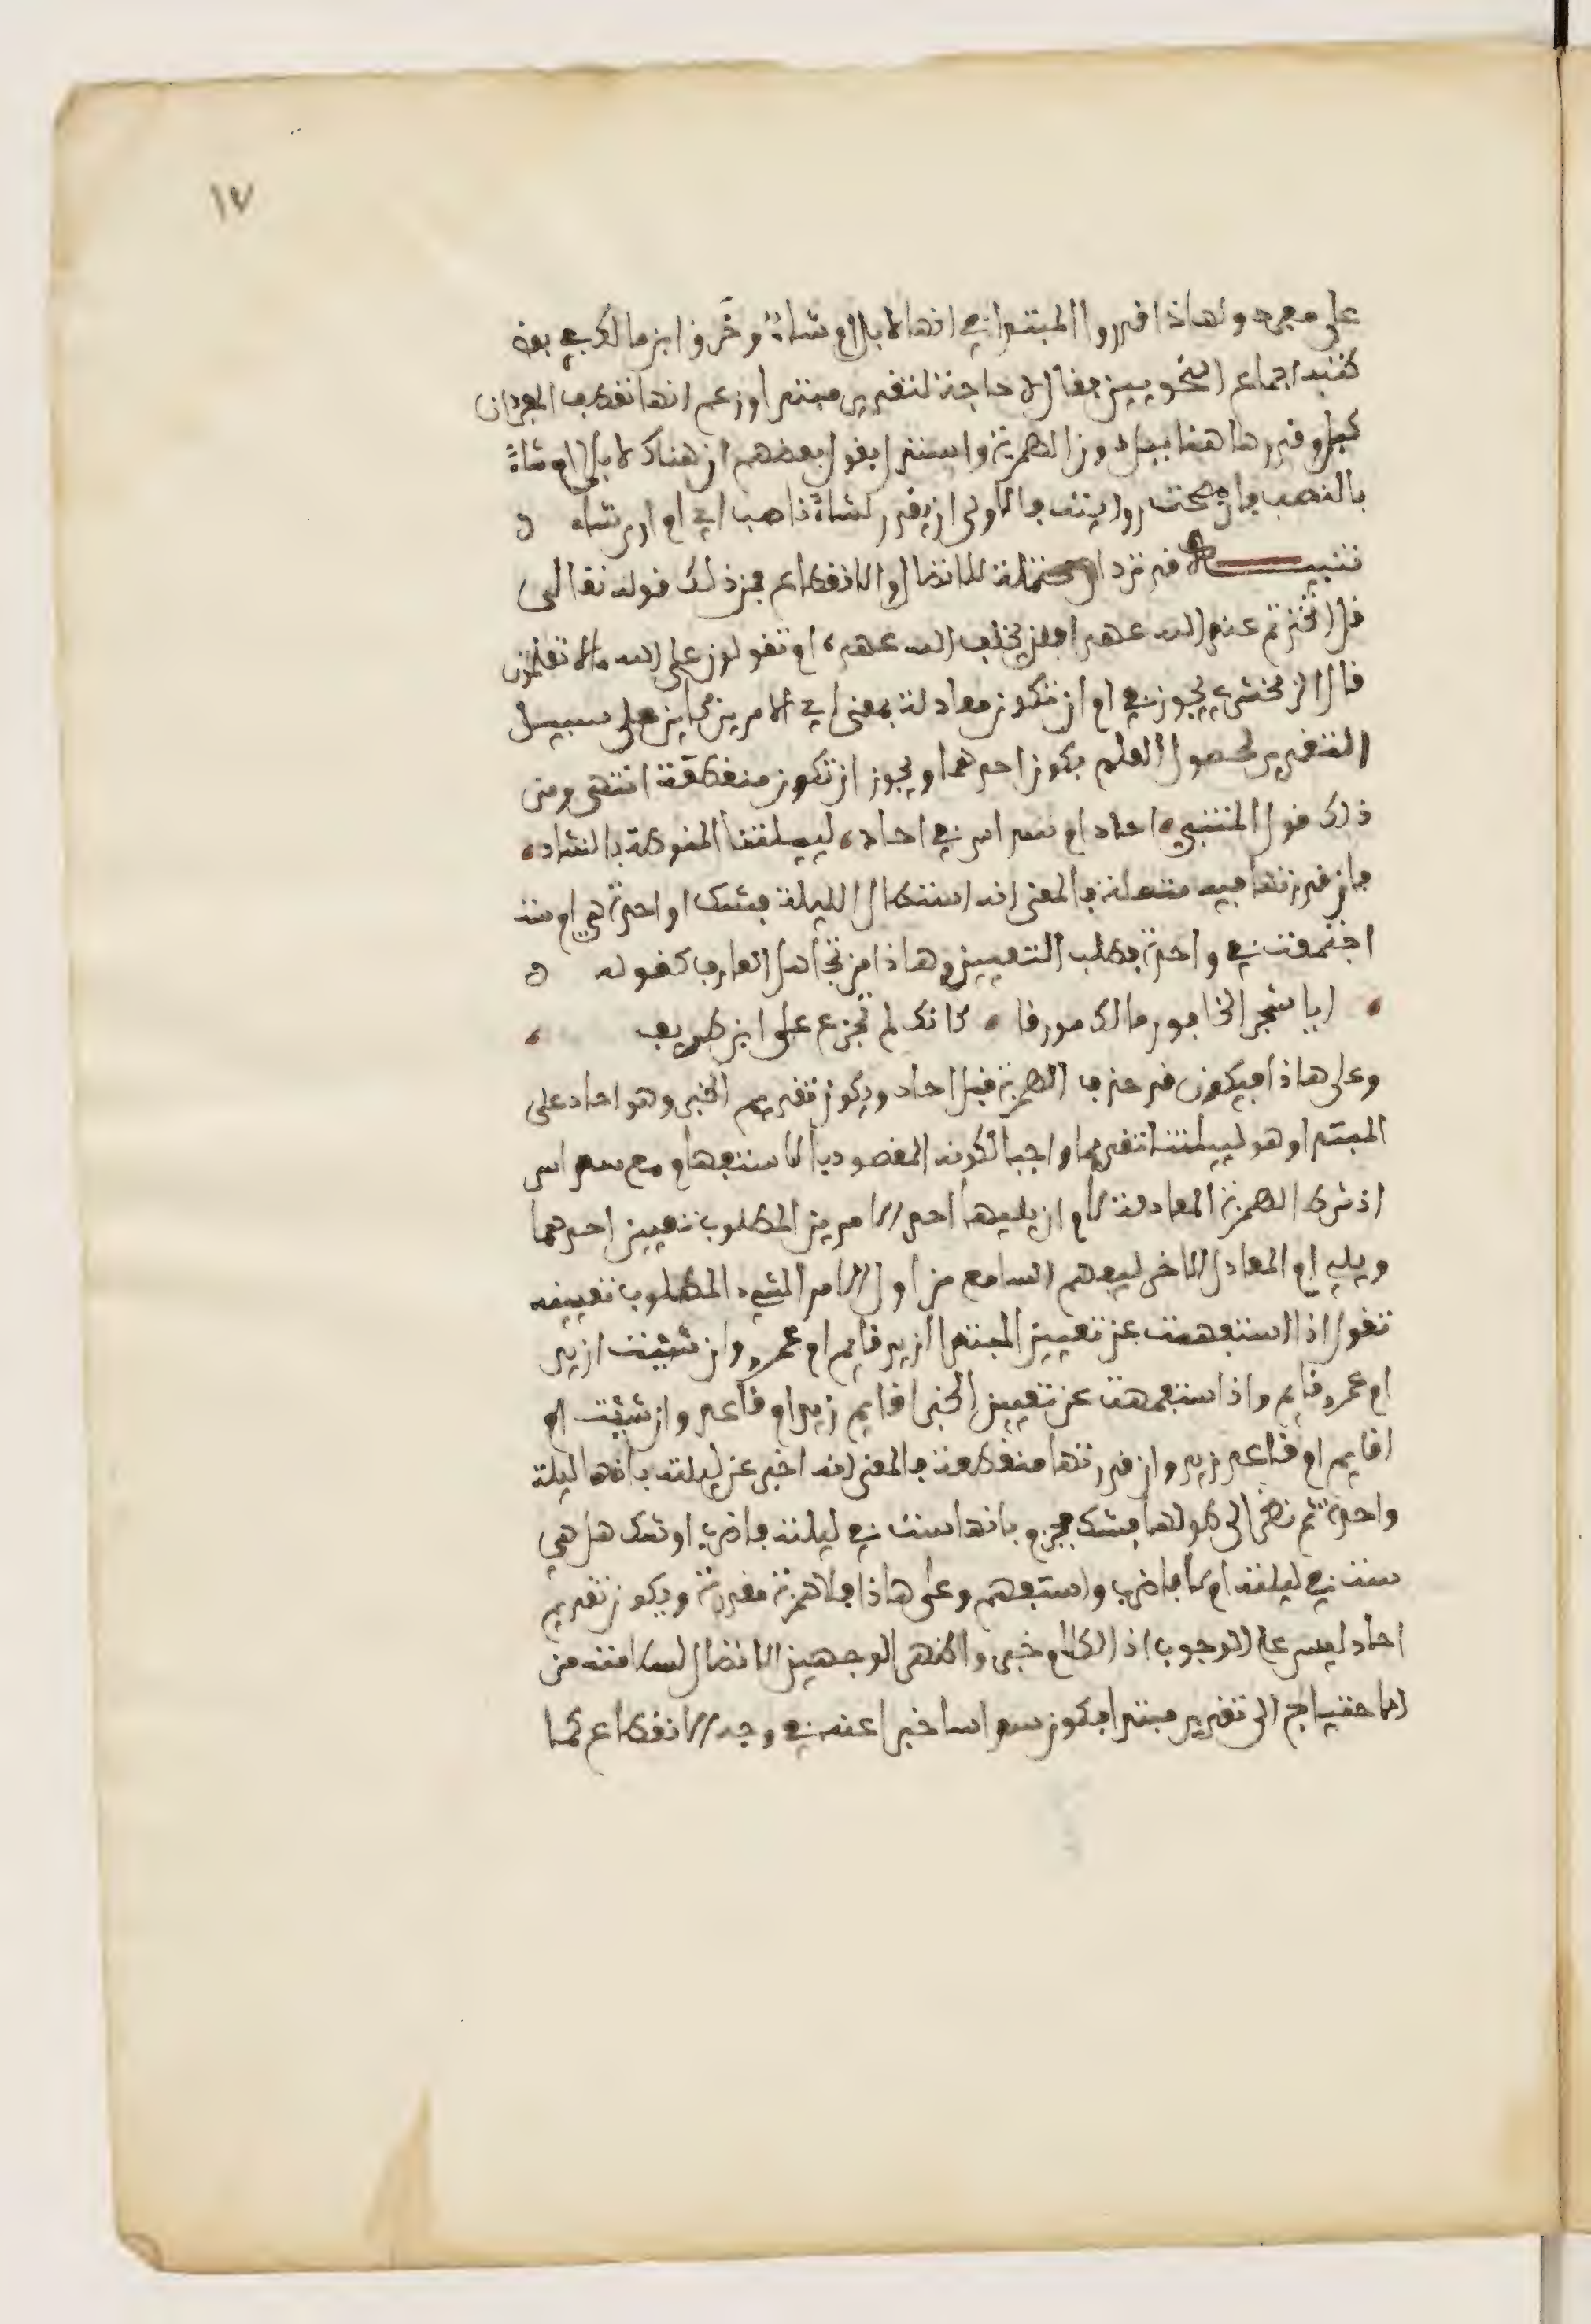 ١٧
على مفرد ولهاذا قدروا المبتدا في انها لابل ام شاء وخرق ابن مالك في بعض
كتبه اجماع النحويين فقال لا حاجة لتقدير مبتدا وزعم انها تعطف المفردات
كبل وقدرها هنا ببل دون الهمزة واستدل بقول بعضهم ان هناك لابلا ام شاءً
بالنصب فان صحت روايته فالاولى ان يقدر لشاءً ناصب اي ام ارى شاء ه
تنبيه قد ترد ام محتملة للاتصال والانقطاع فمن ذلك قوله تعالى
قل اتخذتم عند الله عهدا فلن يخلف الله عهده ام تقولون على الله ما لا تعلمون
قال الزمخشري يجوز في ام ان تكون معادلة بمعنى اي الامرين كاين على سبيل
التقرير لحصول العلم بكون احدهما ويجوز ان تكون منقطعة انتهى ومن
ذلك قول المتنبي احاد ام سداس في احاد لييلتنا المنوطة بالتناد
فان قدرتها فيه متصلة فالمعنى انه استطال الليلة فشك اواحدة هي ام ست
اجتمعت في واحدة فطلب التعيين وهاذا من تجاهل العارف كقوله ه
ايا شجر الخابور مالك مورقا كانك لم تجزع على ابن طريف
وعلى هاذا فيكون قد حذف الهمزة قبل احاد ويكون تقديم الخبر وهو احاد على
المبتدا وهو لييلتنا تقديما واجبا لكونه المقصود بالاستفهام مع سداس
اذ شرط الهمزة المعادلة لام ان يليها احد الامرين المطلوب تعيين احدهما
ويلي ام المعادل الاخر ليفهم السامع من اول الامر الشيء المطلوب تعيينه
تقول اذا استفهمت عن تعيين المبتدا ازيد قايم ام عمرو وان شيت ازيد
ام عمرو قايم واذا ستفهمت عن تعيين الخبر اقايم زيد ام قاعد وان شئت
اقايم ام قاعد زيد وان قدرتها منقطعة فالمعنى انه اخبر عن ليلته بانها ليلة
واحدة ثم نظر الى طولها فشك فجزم بانها ست في ليلة فاضرب او شك هل هي
ست في ليلة ام لا فاضرب واستفهم وعلى هاذا فلا همزة مقدرة ويكون تقديم
احاد ليس على الوجوب اذ الكلام خبر واظهر الوجهين الاتصال لسلامته من
الاحتياج الى تقدير مبتدا يكون سداسا خبرا عنه في وجه الانقطاع كما